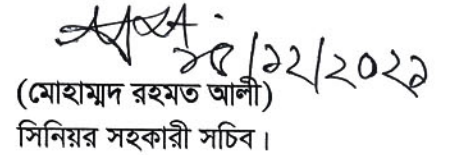 ২৫/১২/২০২১
(মোহাম্মদ রহমত আলী)
সিনিয়র সহকারী সচিব।